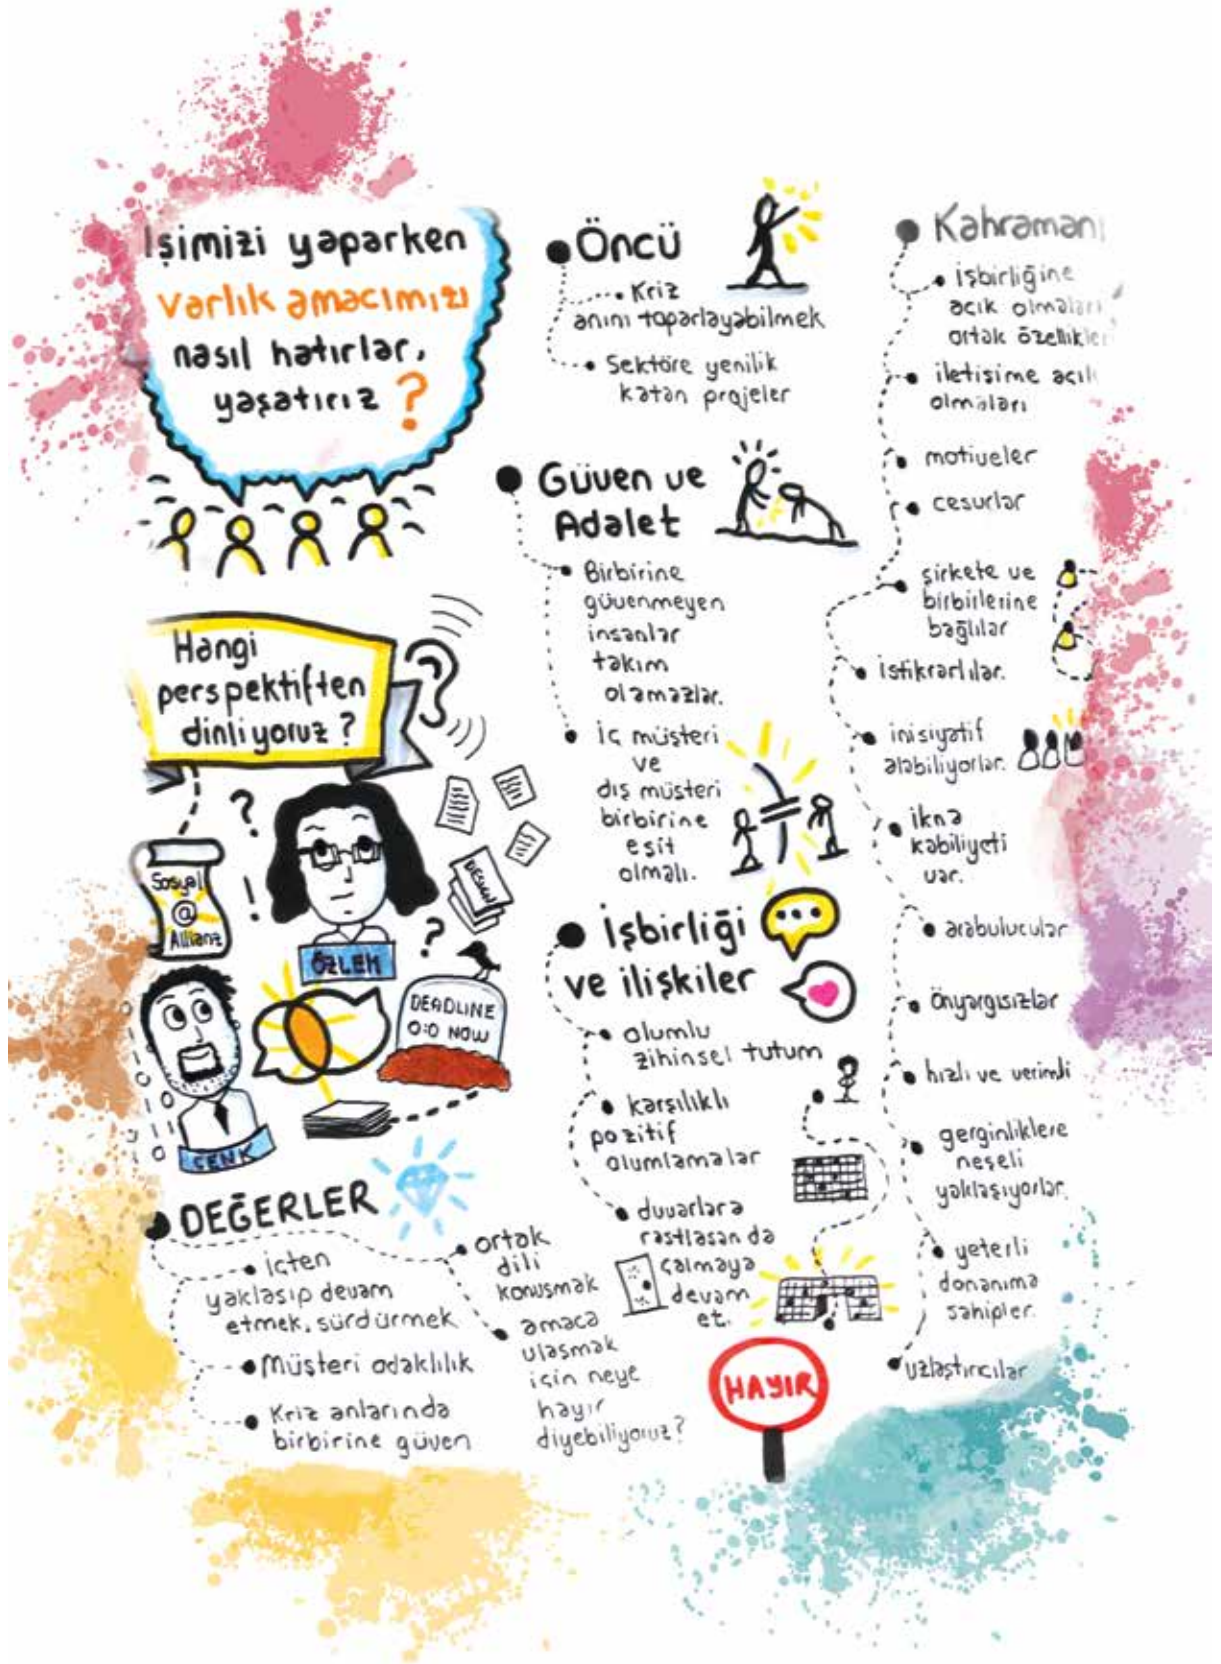 İşimizi yaparken
varlık amacımızı
nasıl hatırlar,
yaşatırız ?
Hangi
perspektiften
dinliyoruz ?
Sosyal
@
Allianz
DESIGN
ÖZLEM
DEADLINE
0:0 NOW
CENK
DEĞERLER
içten
yaklaşıp devam
etmek, sürdürmek
Müşteri odaklılık
Kriz anlarında
birbirine güven
ortak
dili
konuşmak
amaca
ulaşmak
için neye
hayır
diyebiliyoruz?
Öncü
Kriz
anını toparlayabilmek
Sektöre yenilik
katan projeler
Güven ve
Adalet
Birbirine
güvenmeyen
insanlar
takım
olamazlar.
İç müşteri
ve
dış müşteri
birbirine
eşit
olmalı.
İşbirliği
ve ilişkiler
olumlu
zihinsel tutum
karşılıklı
pozitif
olumlamalar
duvarlara
rastlasan da
çalmaya
devam
et.
HAYIR
işbirliğine
açık olmaları
ortak özellikler
iletişime açık
olmaları
motiveler
cesurlar
şirkete ve
birbirlerine
bağlılar
istikrarlılar.
inisiyatif
alabiliyorlar.
ikna
kabiliyeti
var.
arabulucular
Önyargısızlar
hızlı ve verimli
gerginliklere
neşeli
yaklaşıyorlar.
yeterli
donanıma
sahipler.
uzlaştırıcılar